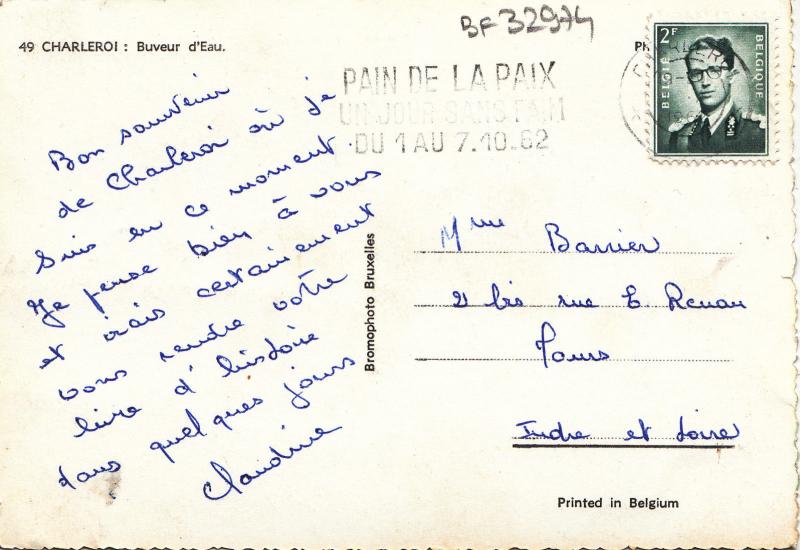 BF 32974
49 CHARLEROI : Buveur d'Eau.
PAIN DE LA PAIX
UN JOUR SANS FAIM
DU 1 AU 7.10.62
2F
BELGIË
BELGIQUE
Bon souvenir
de Charleroi où je
suis en ce moment.
Je pense bien à vous
et irais certainement
vous rendre votre
livre d'histoire
dans quelques jours
Claudine
Bromophoto Bruxelles
Mme Barrier
21 bis rue E. Renan
Tours
Indre et Loire
Printed in Belgium